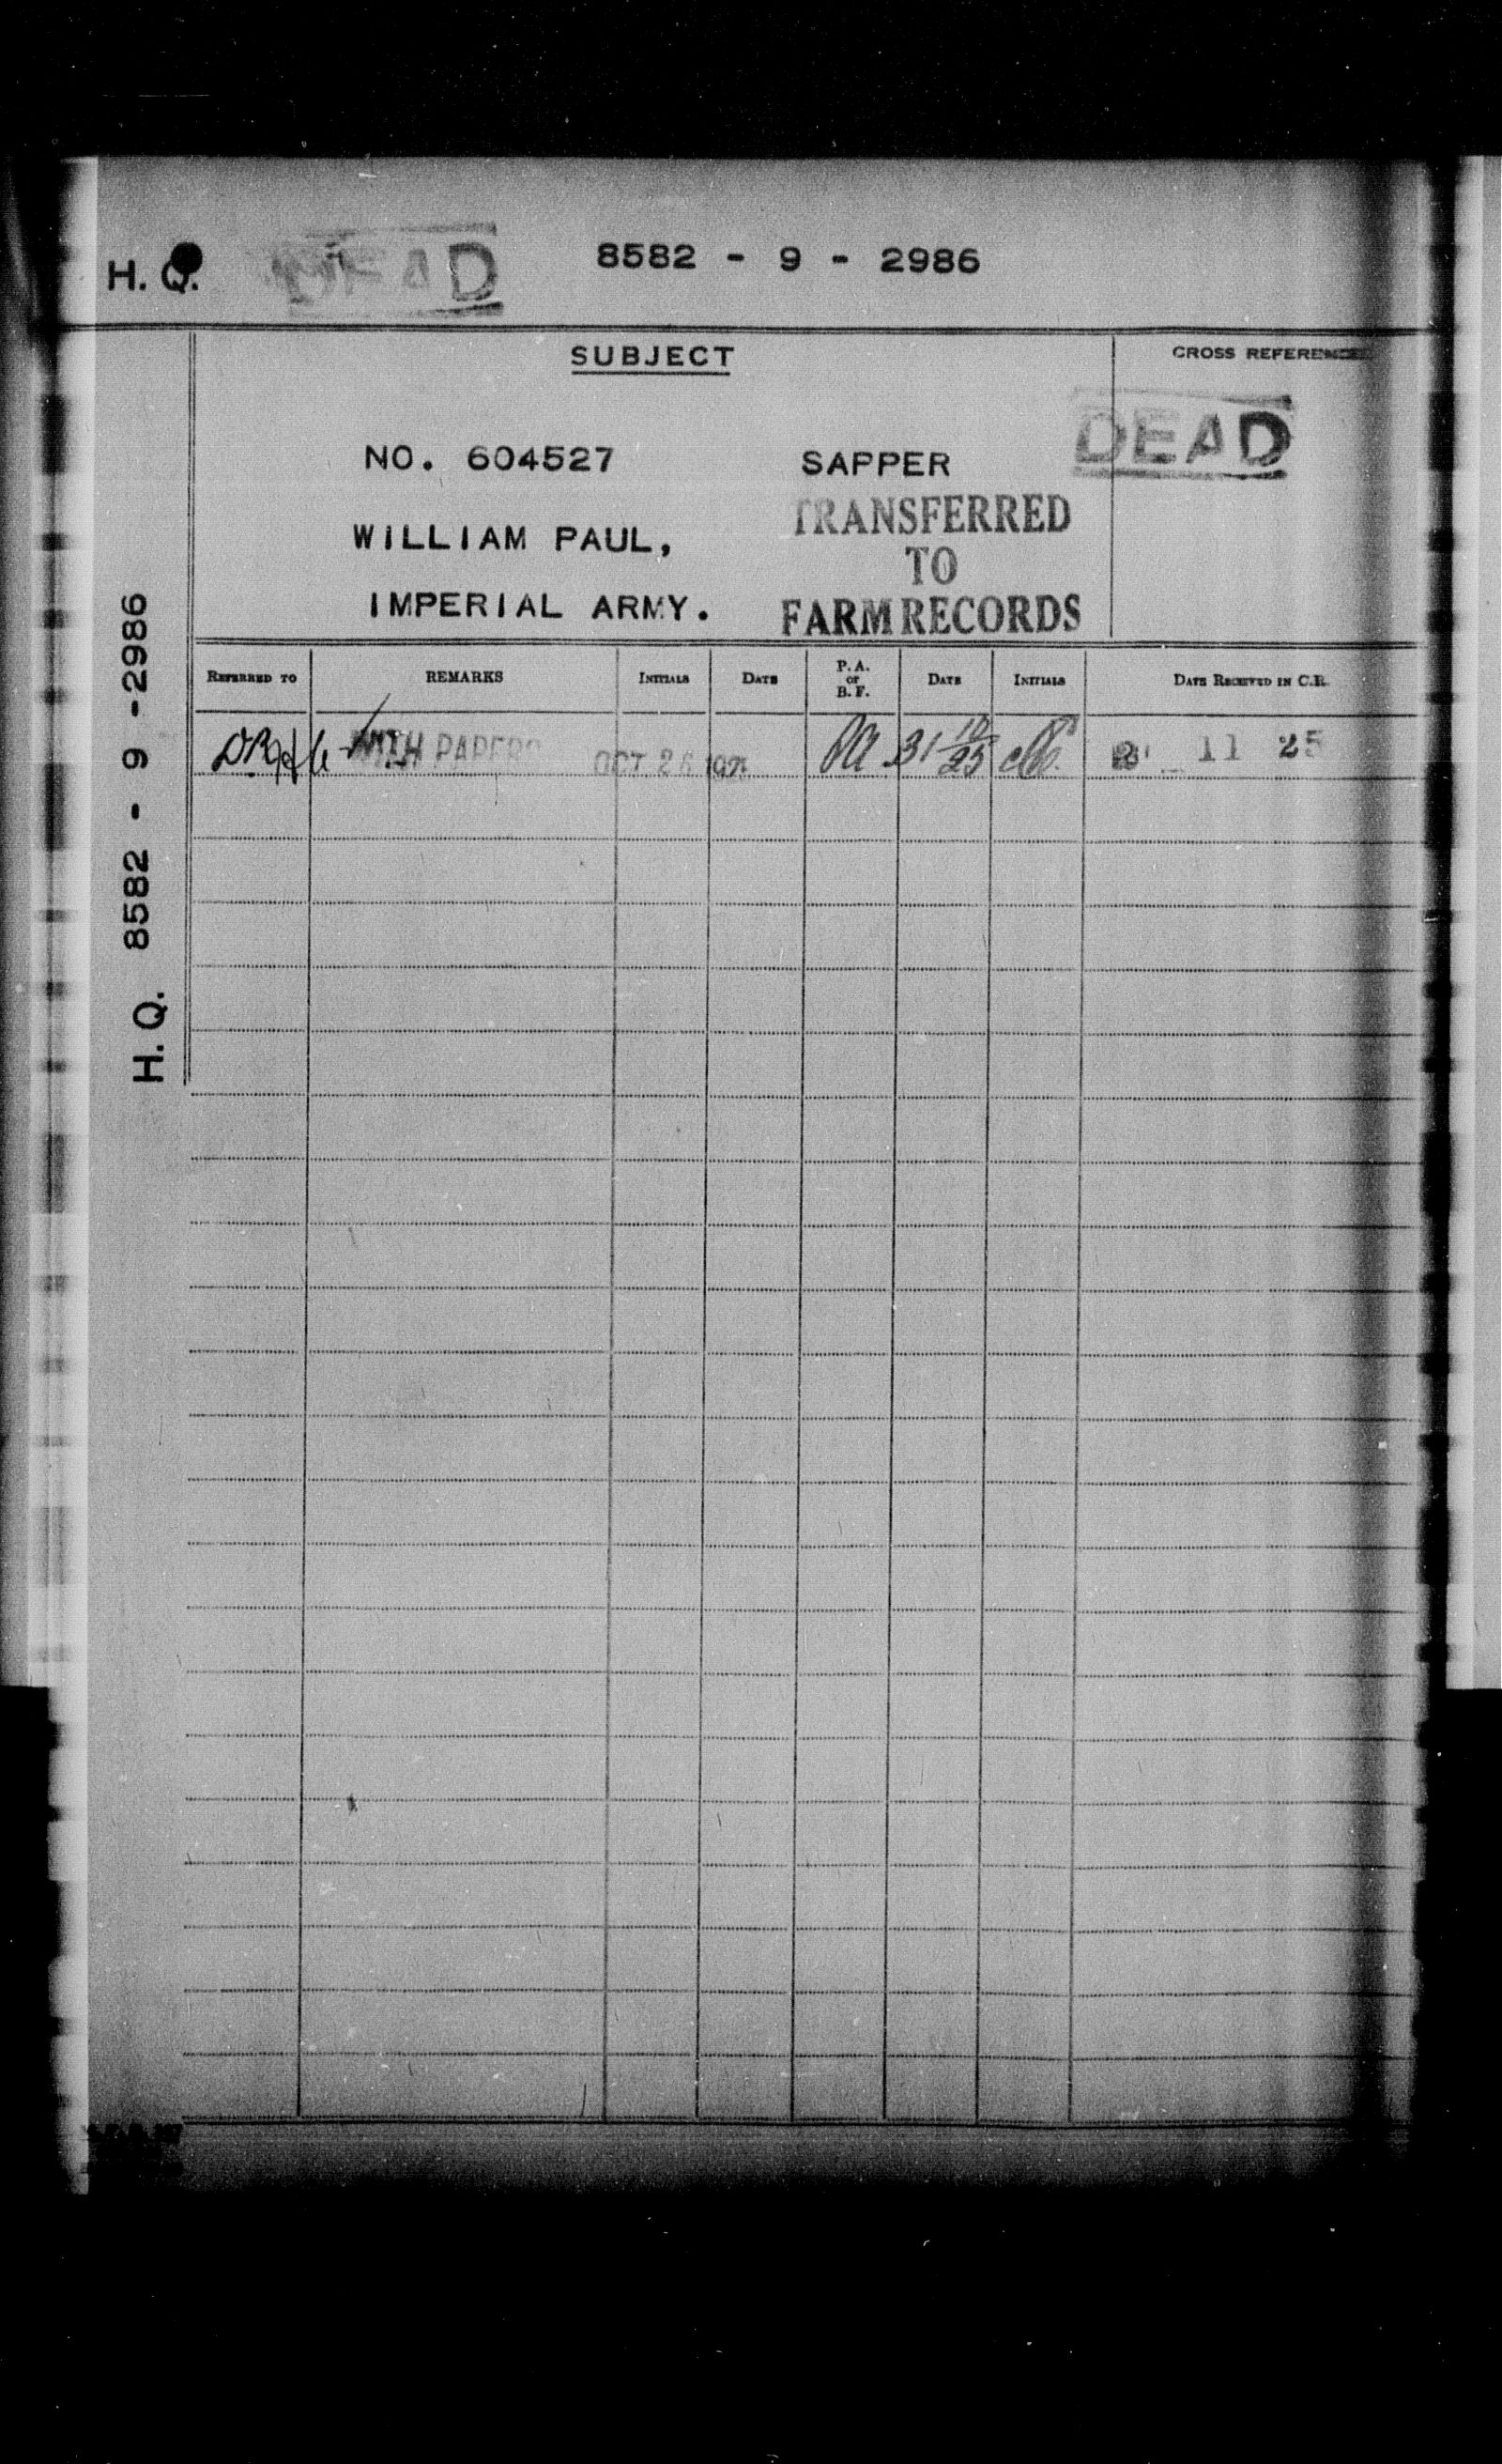 H. Q. DEAD 8582 - 9 - 2986
SUBJECT
CROSS REFERENCE
DEAD
NO. 604527 SAPPER
TRANSFERRED
WILLIAM PAUL,
TO
IMPERIAL ARMY.
FARM RECORDS
H. Q. 8582 - 9 -2986
REFERRED TO REMARKS INITIALS DATE P. A. OR B. F. DATE INITIALS DATE RECEIVED IN C.R.
WITH PAPERS OCT 26 PA 31 10/25 11 25